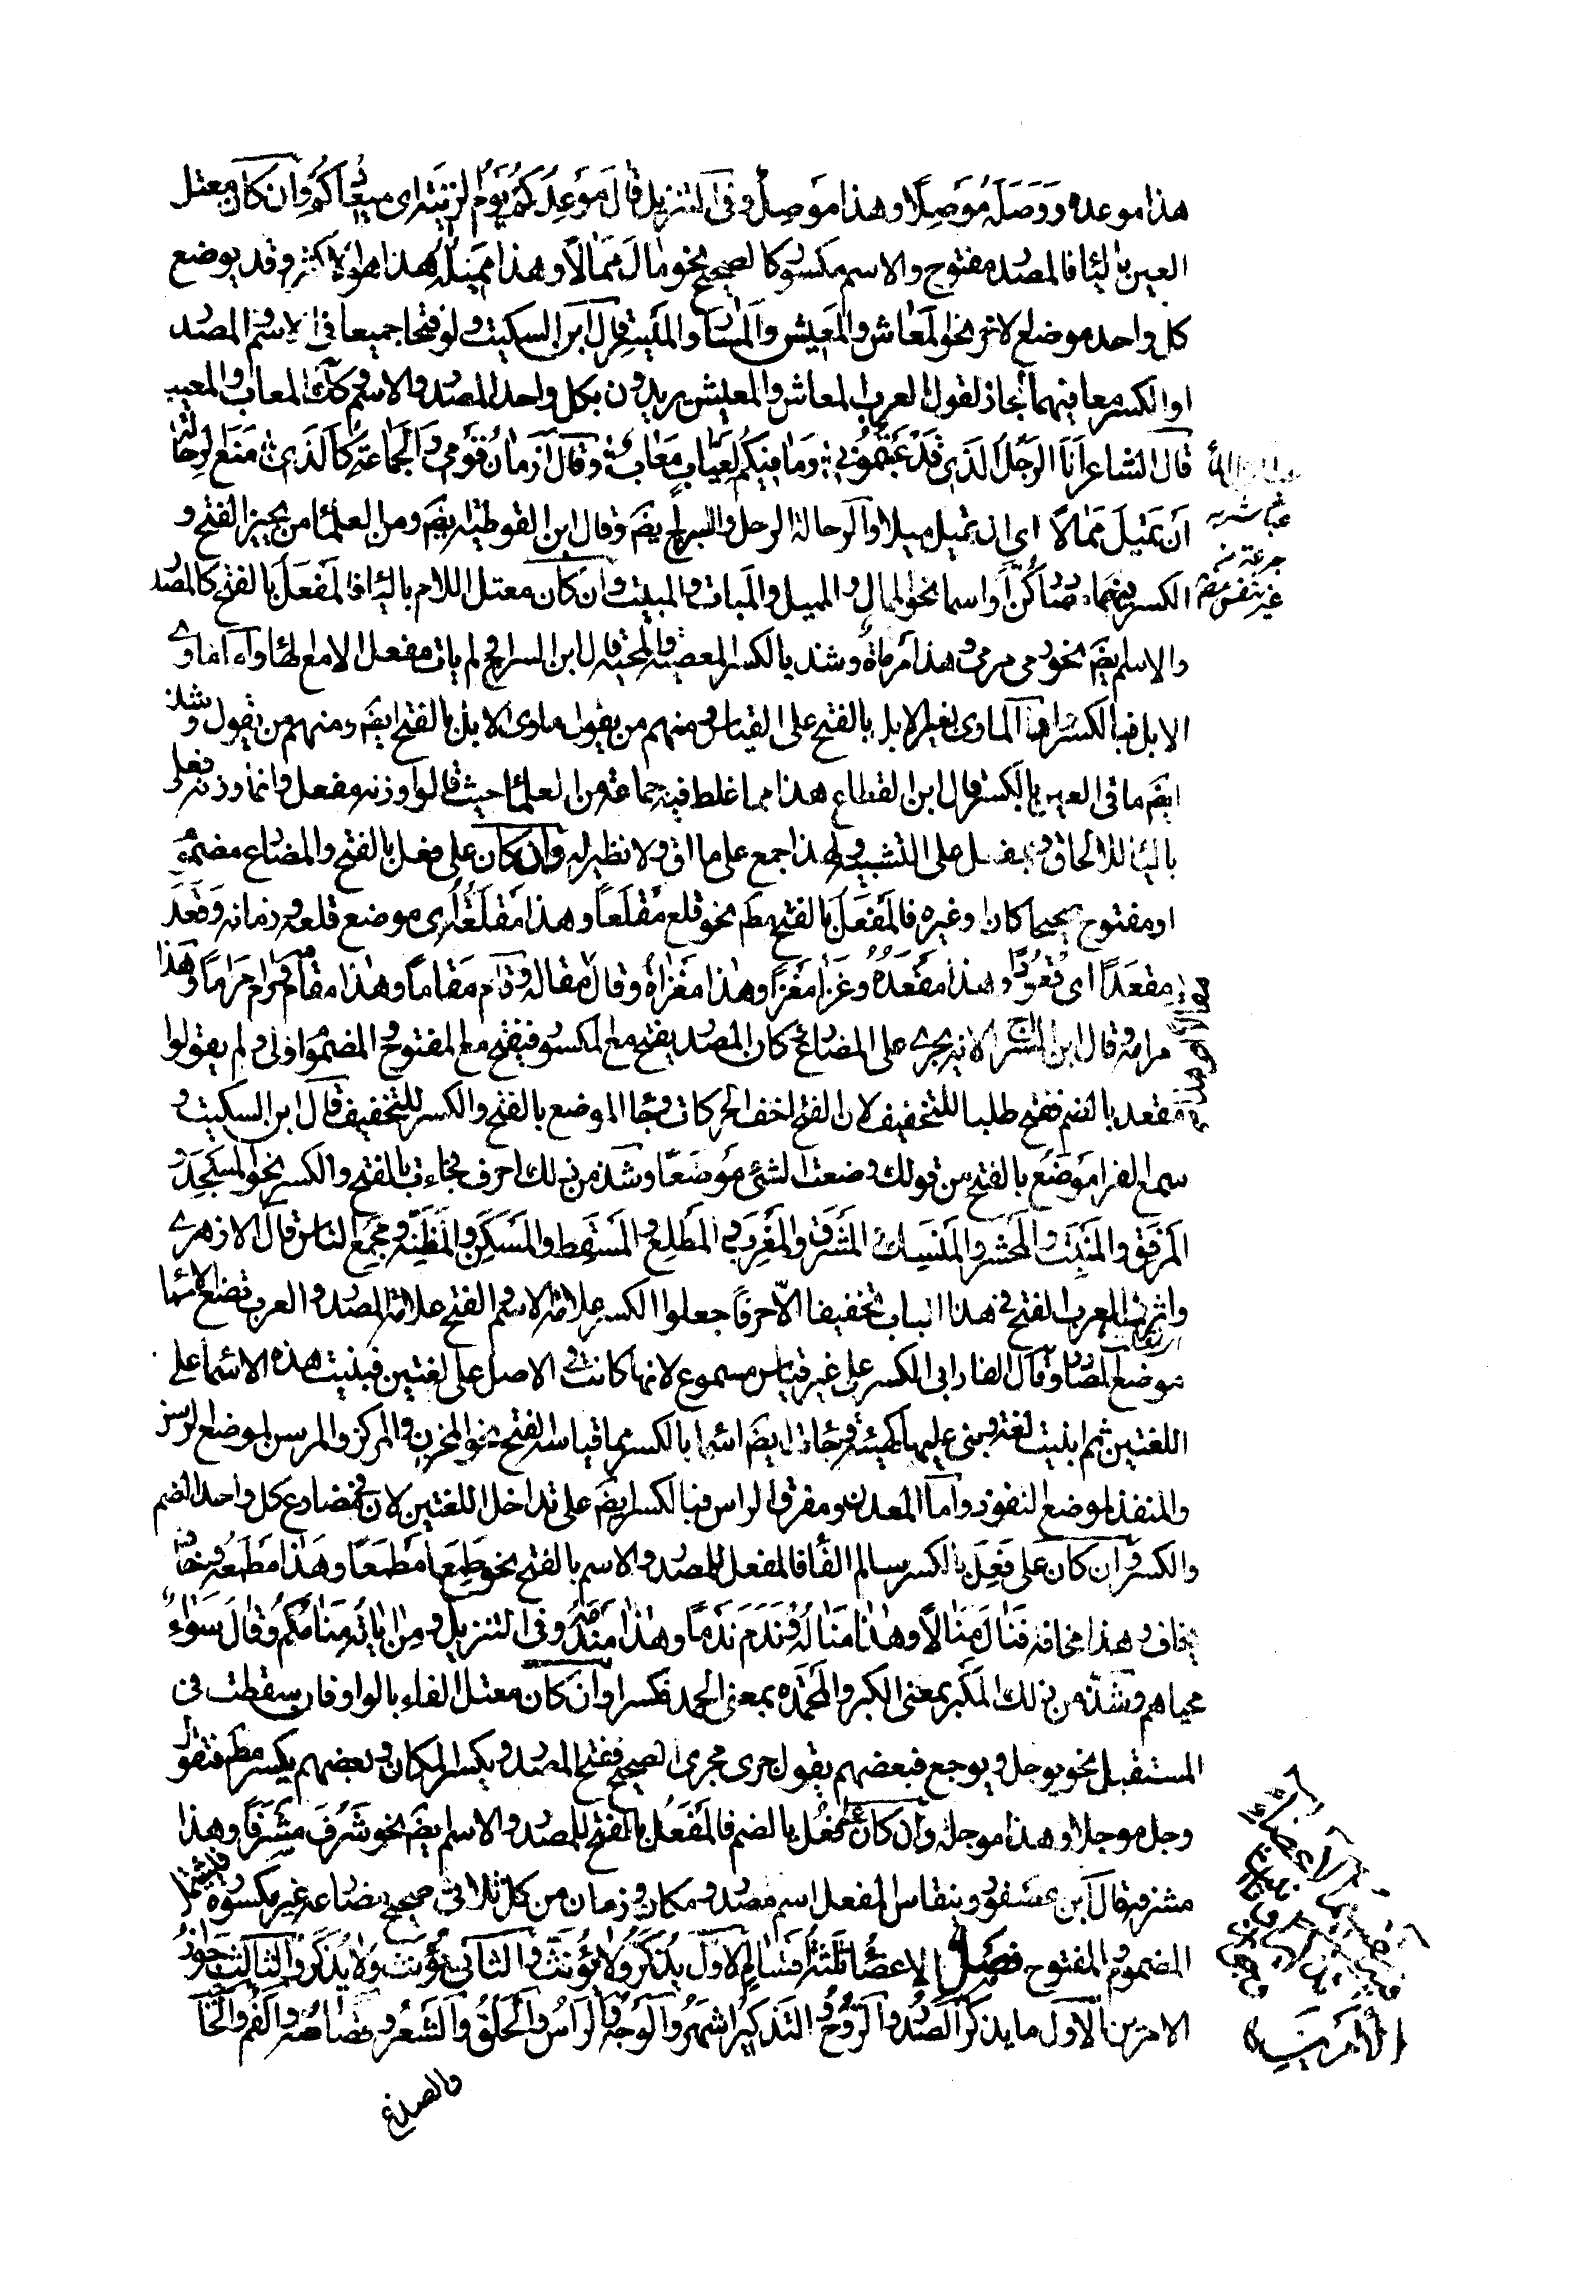 هذا موعده ووصله موصلا وهذا موصل وفى التنزيل قال موعدكم يوم الزينة اى ميعادكم وان كان معتل
العين بالياء فالمصدر مفتوح والاسم مكسور كالصحيح نحو مال ممالا وهذا مميله هذا هو الاكثر وقد يوضع
كل واحد موضع الاخر نحو المعاش والمعيش والمسار والمسير قال ابن السكيت ولو فتحا جميعا فى الاسم والمصدر
او الكسر معا فيهما لجاز لقول العرب المعاش والمعيش يريدون بكل واحد المصدر والاسم وكذلك المعاب والمعيب
قال الشاعر انا الرجل الذى قد عبتمونى وما فيكم لعياب معاب وقال ازمان قومى والجماعة كالذى منع الرحالة
ان تميل ممالا اى ان تميل ميلا والرحالة الرحل والسرج ايضم وقال ابن القوطية ايضم ومن العلماء من يجيز الفتح و
الكسر فيهما مصادر كن او اسما نحو الممال والمميل والمبات والمبيت وان كان معتل اللام بالياء فالمفعل بالفتح كالمصدر
والاسم ايضم نحو رمى مرمى وهذا مرماه وشذ بالكسر المعصية والمحمية قال ابن السراج ولم يات مفعل الا مع الهاء واما ماوى
الابل فبالكسر الماوى لغير الابل بالفتح على القياس ومنهم من يقول ماوى الابل بالفتح ايضم ومنهم من يقول وشذ
ايضم ماقى العين بالكسر قال ابن القطاع هذا مما غلط فيه جماعة من العلماء حيث قالوا وزنه مفعل وانما وزنه فعلى
بالياء للالحاق بمفعل على التشبيه ولهذا جمع على ماقى ولا نظير له وان كان على فعل بالفتح والمضارع مضموم
او مفتوح صحيحا كان او غيره فالمفعل بالفتح مطم نحو قلع مقلعا وهذا مقلعة اى موضع قلعه وزمانه وقعد
مقعدا اى قعودا وهذا مقعده وغزا مغزا وهذا مغزاه وقال مقاله وقام مقاما وهذا مقامه ورام مراما وهذا
مرامه قال ابن السراج لانه يجرى على المضارع كان المصدر يفتح مع المكسور فيفتح مع المفتوح والمضموم اولى ولم يقولوا
مقعد بالضم ففتح طلبا للتخفيف لان الفتح اخف الحركات وجاء الموضع بالفتح والكسر للتخفيف قال ابن السكيت و
سمع الفرا موضع بالفتح من قولك وضعت الشئ موضعا وشذ من ذلك احرف فجاءت بالفتح والكسر نحو المسجد و
المرفق والمنبت والمحشر والمنسك والمشرق والمغرب والمطلع والمسقط والمسكن والمظنة ومجمع الناس قال الازهرى
واثرت العرب الفتح فى هذا الباب تخفيفا الا احرفا جعلوا الكسر علامة الاسم والفتح علامة المصدر والعرب تضع الاسماء
موضع المصادر وقال الفارابى الكسر على غير قياس مسموع لانها كانت فى الاصل على لغتين فبنيت هذه الاسما على
اللغتين ثم اميتت لغة وبنى عليها كهيئته وجاءت ايضم اسما بالكسر مما قياسه الفتح نحو المخزن والمركز والمرسن لموضع الرسن
والمنفذ لموضع النفوذ واما المعدن ومفرق الراس فبالكسر ايضم على تداخل اللغتين لان فى مضارع كل واحد الضم
والكسر وان كان على فعل بالكسر سالم الفاء فالمفعل للمصدر والاسم بالفتح نحو طمع مطمعا وهذا مطمعه وخاف
يخاف وهذا مخافه فنال منالا وهذا مناله وندم ندما وهذا مندمه وفى التنزيل ومن اياته منامكم وقال سواء
محياهم وشذ من ذلك المكبر بمعنى الكبر والمحمده بمعنى الحمد فكسرا وان كان معتل الفاء بالواو فان سقطت فى
المستقبل نحو يوجل ويوجع فبعضهم يقول جرى مجرى الصحيح ففتح المصدر وبكسر المكان وبعضهم يكسر مطم فتقول
وجل موجلا وهذا موجله وان كان على فعل بالضم فالمفعل بالفتح للمصدر والاسم ايضم نحو شرف مشرفا وهذا
مشرفه قال ابن عصفور وينقاس المفعل اسم مصدر ومكان وزمان من كل ثلاثى صحيح مضارعه غير مكسور فيشمل
المضموم والمفتوح فصل الاعضا ثلثة اقسام الاول يذكر ولا يؤنث والثانى يؤنث ولا يذكر والثالث جواز
الامرين الاول ما يذكر الصدر والروح التذكير اشهر والوجه والراس والحلق والشعر وقصاصه والفم والحا
والصدغ